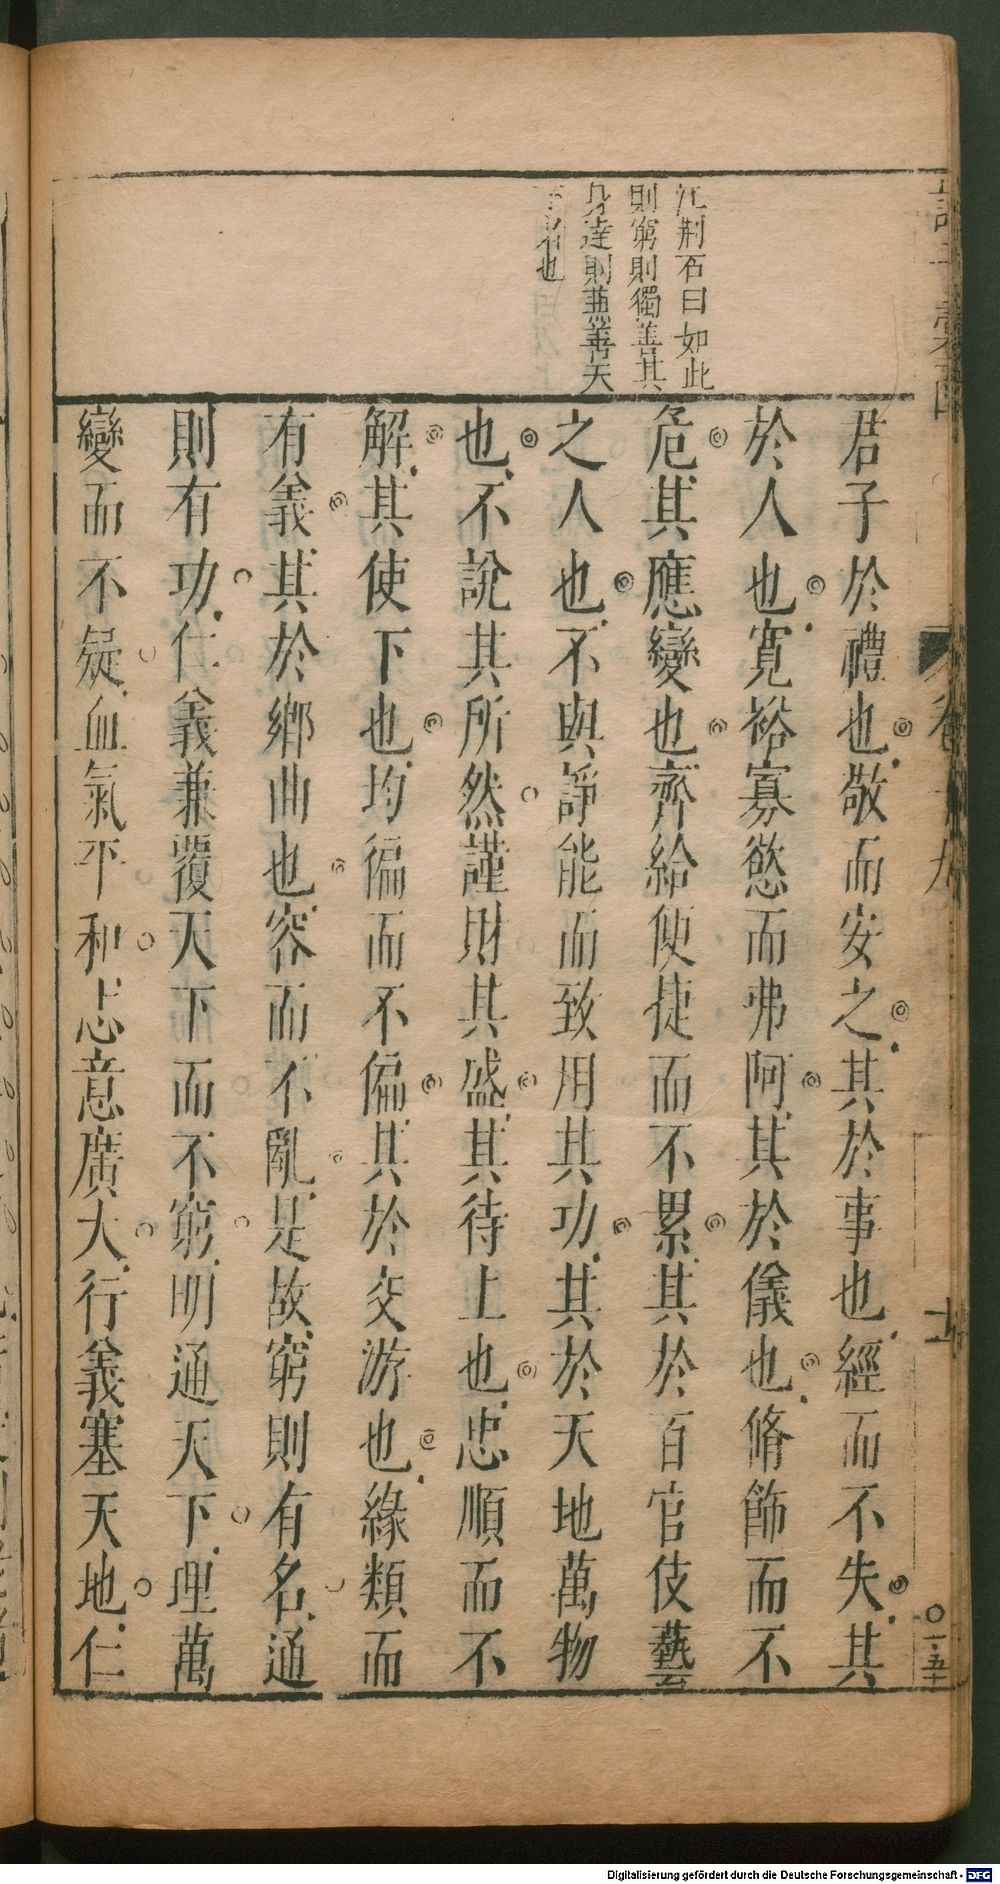 汪荆石曰如此
則窮則獨善其
身達則兼善天
下者也
君子於禮也敬而安之其於事也經而不失其
於人也寬裕寡慾而弗阿其於儀也脩飾而不
危其應變也齊給便捷而不累其於百官伎藝
之人也不與諍能而致用其功其於天地萬物
也不說其所然謹財其盛其待上也忠順而不
解其使下也均徧而不偏其於交游也緣類而
有義其於鄉曲也容而不亂是故窮則有名通
則有功仁義兼覆天下而不窮明通天下理萬
變而不疑血氣平和志意廣大行義塞天地仁
Digitalisierung gefördert durch die Deutsche Forschungsgemeinschaft - DFG